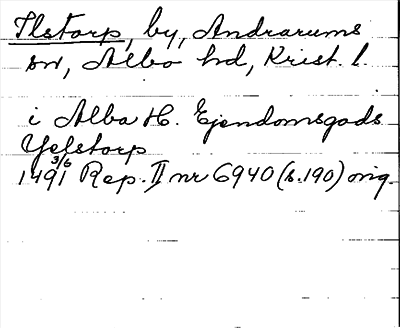 Ilstorp, by, Andrarums
sn, Albo hd, Krist. l.
i Alba H. Ejendomsgods
Yelstorp
1491 3/6 Rep. II nr 6940 (s. 190) orig.